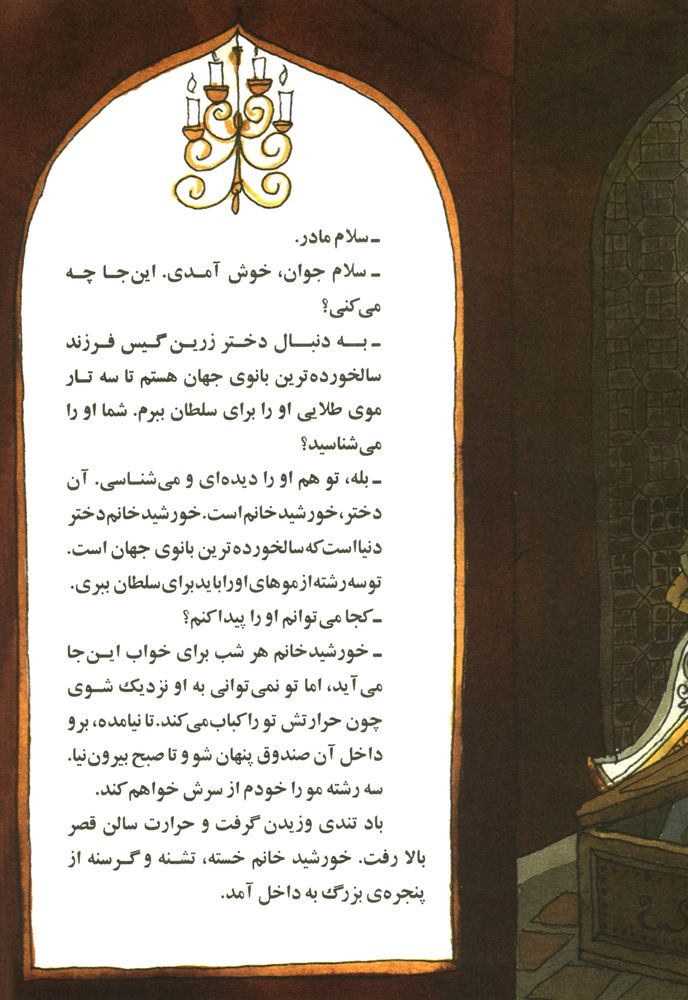 ـ سلام مادر.
ـ سلام جوان، خوش آمـدی. این‌جـا چـه
می‌کنی؟
ـ بــه دنبــال دختـر زریـن گـیس فـرزند
سالخورده‌ترین بانوی جهان هستم تا سه تـار
موی طلایی او را برای سلطان ببرم. شما او را
می‌شناسید؟
ـ بله، تو هم او را دیده‌ای و می‌شناسی. آن
دختر، خورشید خانم است. خورشید خانم دختر
دنیا است که سالخورده‌ترین بانوی جهان است.
تو سه رشته از موهای او را باید برای سلطان ببری.
ـ کجا می‌توانم او را پیدا کنم؟
ـ خورشید خانم هر شب برای خواب ایـن‌جا
می‌آید، اما تو نمی‌توانی به او نزدیک شـوی
چون حرارتش تو را کباب می‌کند. تا نیامده، برو
داخل آن صندوق پنهان شو و تا صبح بیرون نیا.
سه رشته مو را خودم از سرش خواهم کند.
باد تندی وزیدن گرفت و حرارت سالن قصر
بالا رفت. خورشید خانم خسته، تشنه و گـرسنه از
پنجره‌ی بزرگ به داخل آمد.